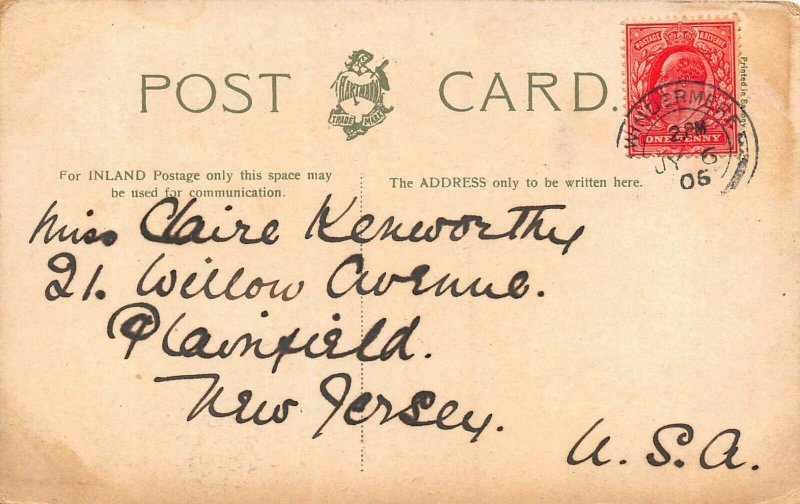 POST CARD.
HARTMANN
TRADE MARK
POSTAGE & REVENUE
ONE PENNY
Printed in
WINDERMERE
2.PM
JY 6
06
For INLAND Postage only this space may
be used for communication.
The ADDRESS only to be written here.
Miss Claire Kenworthy
21. Willow Avenue.
Plainfield.
New Jersey.
U.S.A.